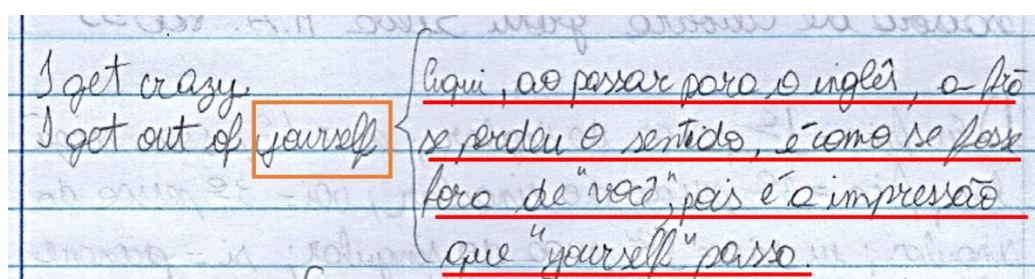 I get crazy.
I get out of yourself
Aqui, ao passar para o inglês, a frã
se perdeu o sentido, é como se fosse
fora de "você", pois é a impressão
que "yourself" passa.